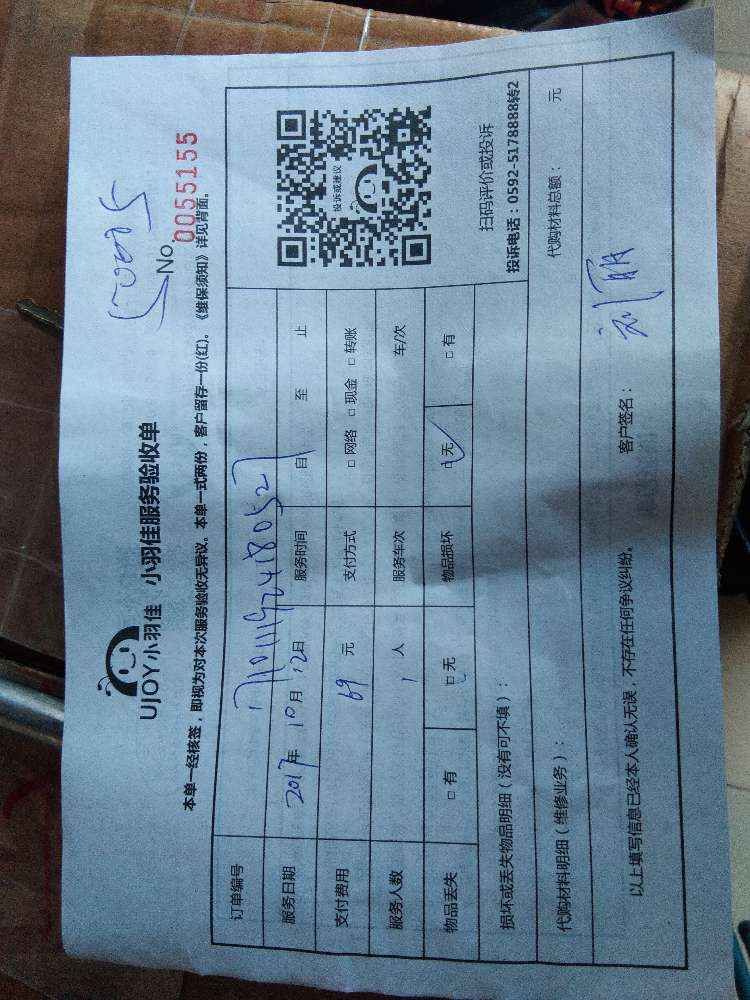 UJOY小羽佳 小羽佳服务验收单
50005
No. 0055155
本单一经核签，即视为对本次服务验收无异议。本单一式两份，客户留存一份(红)。《维保须知》详见背面。
订单编号
服务日期 2017年 10月 12日 服务时间 自 至 止
支付费用 69 元 支付方式 □ 网络 □ 现金 □ 转账
服务人数 1 人 服务车次 车/次
物品丢失 □ 有 □ 无 物品损坏 □ 无 □ 有
投诉或建议
扫码评价或投诉
投诉电话：0592-5178888转2
损坏或丢失物品明细（没有可不填）：
代购材料明细（维修业务）： 代购材料总额： 元
以上填写信息已经本人确认无误，不存在任何争议纠纷。 客户签名： 刘丽